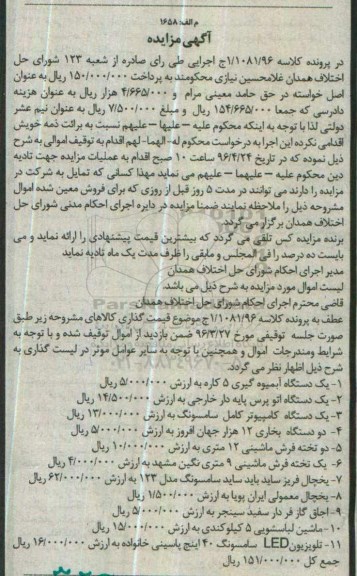 م الف: ۱۶۵۸
آگهی مزایده
در پرونده کلاسه ۱/۱۰۸۱/۹۶ج اجرایی طی رای صادره از شعبه ۱۲۳ شورای حل
اختلاف همدان غلامحسین نیازی محکومند به پرداخت ۱۵۰/۰۰۰/۰۰۰ ریال به عنوان
اصل خواسته در حق حامد معینی مرام و ۴/۶۶۵/۰۰۰ هزار ریال به عنوان هزینه
دادرسی که جمعا ۱۵۴/۶۶۵/۰۰۰ ریال و مبلغ ۷/۵۰۰/۰۰۰ ریال به عنوان نیم عشر
دولتی لذا با توجه به اینکه محکوم علیه – علیها – علیهم نسبت به برائت ذمه خویش
اقدامی نکرده این اجرا به درخواست محکوم له-الهما-لهم اقدام به توقیف اموالی به شرح
ذیل نموده که در تاریخ ۹۶/۴/۲۴ ساعت ۱۰ صبح اقدام به عملیات مزایده جهت تادیه
دین محکوم علیه – علیهما – علیهم می نماید مهذا کسانی که تمایل به شرکت در
مزایده را دارند می توانند در مدت ۵ روز قبل از روزی که برای فروش معین شده اموال
مشروحه ذیل را ملاحظه نمایند ضمنا مزایده در دایره اجرای احکام مدنی شورای حل
اختلاف همدان برگزار می گردد.
برنده مزایده کس تلقی می گردد که بیشترین قیمت پیشنهادی را ارائه نماید و می
بایست ده درصد را فی المجلس و مابقی را ظرف مدت یک ماه تادیه نماید
مدیر اجرای احکام شورای حل اختلاف همدان
لیست اموال مورد مزایده به شرح ذیل می باشد.
قاضی محترم اجرای احکام شورای حل اختلاف همدان
عطف به پرونده کلاسه ۱/۱۰۸۱/۹۶ج موضوع قیمت گذاری کالاهای مشروحه زیر طبق
صورت جلسه توقیفی مورخ ۹۶/۳/۲۷ ضمن بازدید از اموال توقیف شده و با توجه به
شرایط ومندرجات اموال و همچنین با توجه به سایر عوامل موثر در لیست گذاری به
شرح ذیل اظهار نظر می گردد.
۱- یک دستگاه آبمیوه گیری ۵ کاره به ارزش ۵/۰۰۰/۰۰۰ ریال
۲- یک دستگاه اتو پرس پایه دار خارجی به ارزش ۱۴/۵۰۰/۰۰۰ ریال
۳- یک دستگاه کامپیوتر کامل سامسونگ به ارزش ۱۳/۰۰۰/۰۰۰ ریال
۴- دو دستگاه بخاری ۱۲ هزار جهان افروز به ارزش ۵/۰۰۰/۰۰۰ ریال
۵- دو تخته فرش ماشینی ۱۲ متری به ارزش ۱۰/۰۰۰/۰۰۰ ریال
۶- یک تخته فرش ماشینی ۹ متری نگین مشهد به ارزش ۴/۰۰۰/۰۰۰ ریال
۷- یخچال فریز ساید بای ساید سامسونگ مدل ۱۲۳ به ارزش ۶۲/۰۰۰/۰۰۰ ریال
۸- یخچال معمولی ایران پویا به ارزش ۱/۵۰۰/۰۰۰ ریال
۹-اجاق گاز فر دار سفید سینجر به ارزش ۵/۰۰۰/۰۰۰ ریال
۱۰- ماشین لباسشویی ۵ کیلو کندی به ارزش ۱۵/۰۰۰/۰۰۰ ریال
۱۱- تلویزیون LED سامسونگ ۴۰ اینچ پاسینی خانواده به ارزش ۱۶/۰۰۰/۰۰۰ ریال
جمع کل ۱۵۱/۰۰۰/۰۰۰ ریال